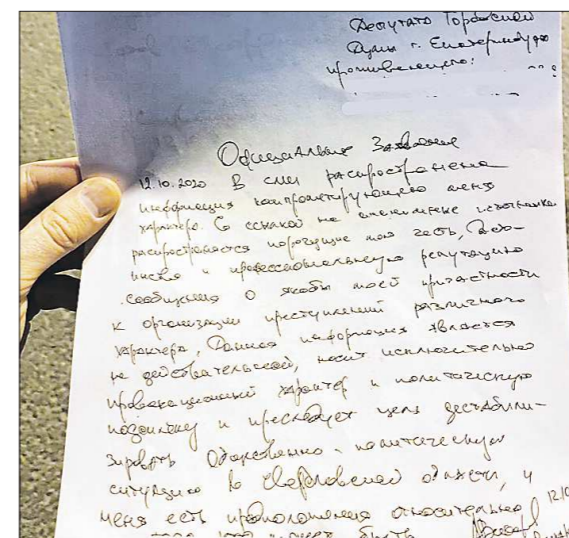 Депутата Городской
Думы г. Екатеринбурга
проживающего:
Официальное Заявление
12.10.2020 В сми распространена
информация компрометирующего меня
характера. Со ссылкой на анонимные источники
распространяются порочущие мою честь, дос-
инство и профессиональную репутацию
сообщения о якобы моей причастности
к организации преступлений различного
характера, Данная информация является
не действительной, носит исключительно
провокационный характер и политическую
подоплеку и преследует цель дестабили-
зировать Общественно-политическую
ситуацию в Свердловской области, у
меня есть предположения относительно
того, кто может быть
12/10